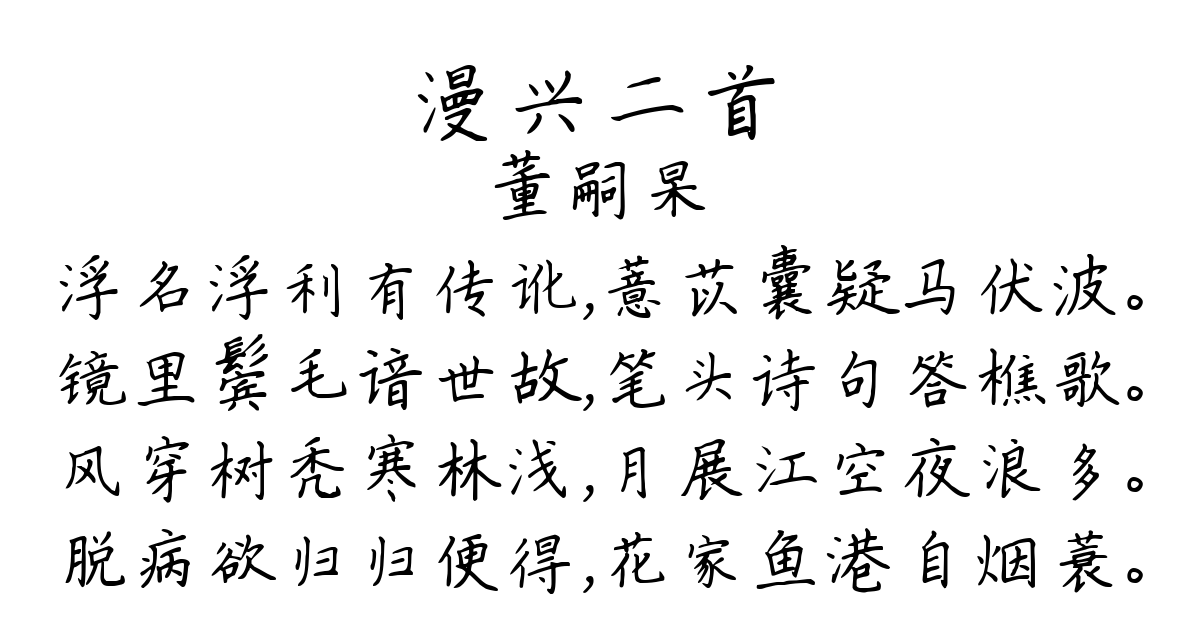 漫兴二首
董嗣杲
浮名浮利有传讹,薏苡囊疑马伏波。
镜里鬓毛谙世故,笔头诗句答樵歌。
风穿树秃寒林浅,月展江空夜浪多。
脱病欲归归便得,花家鱼港自烟蓑。